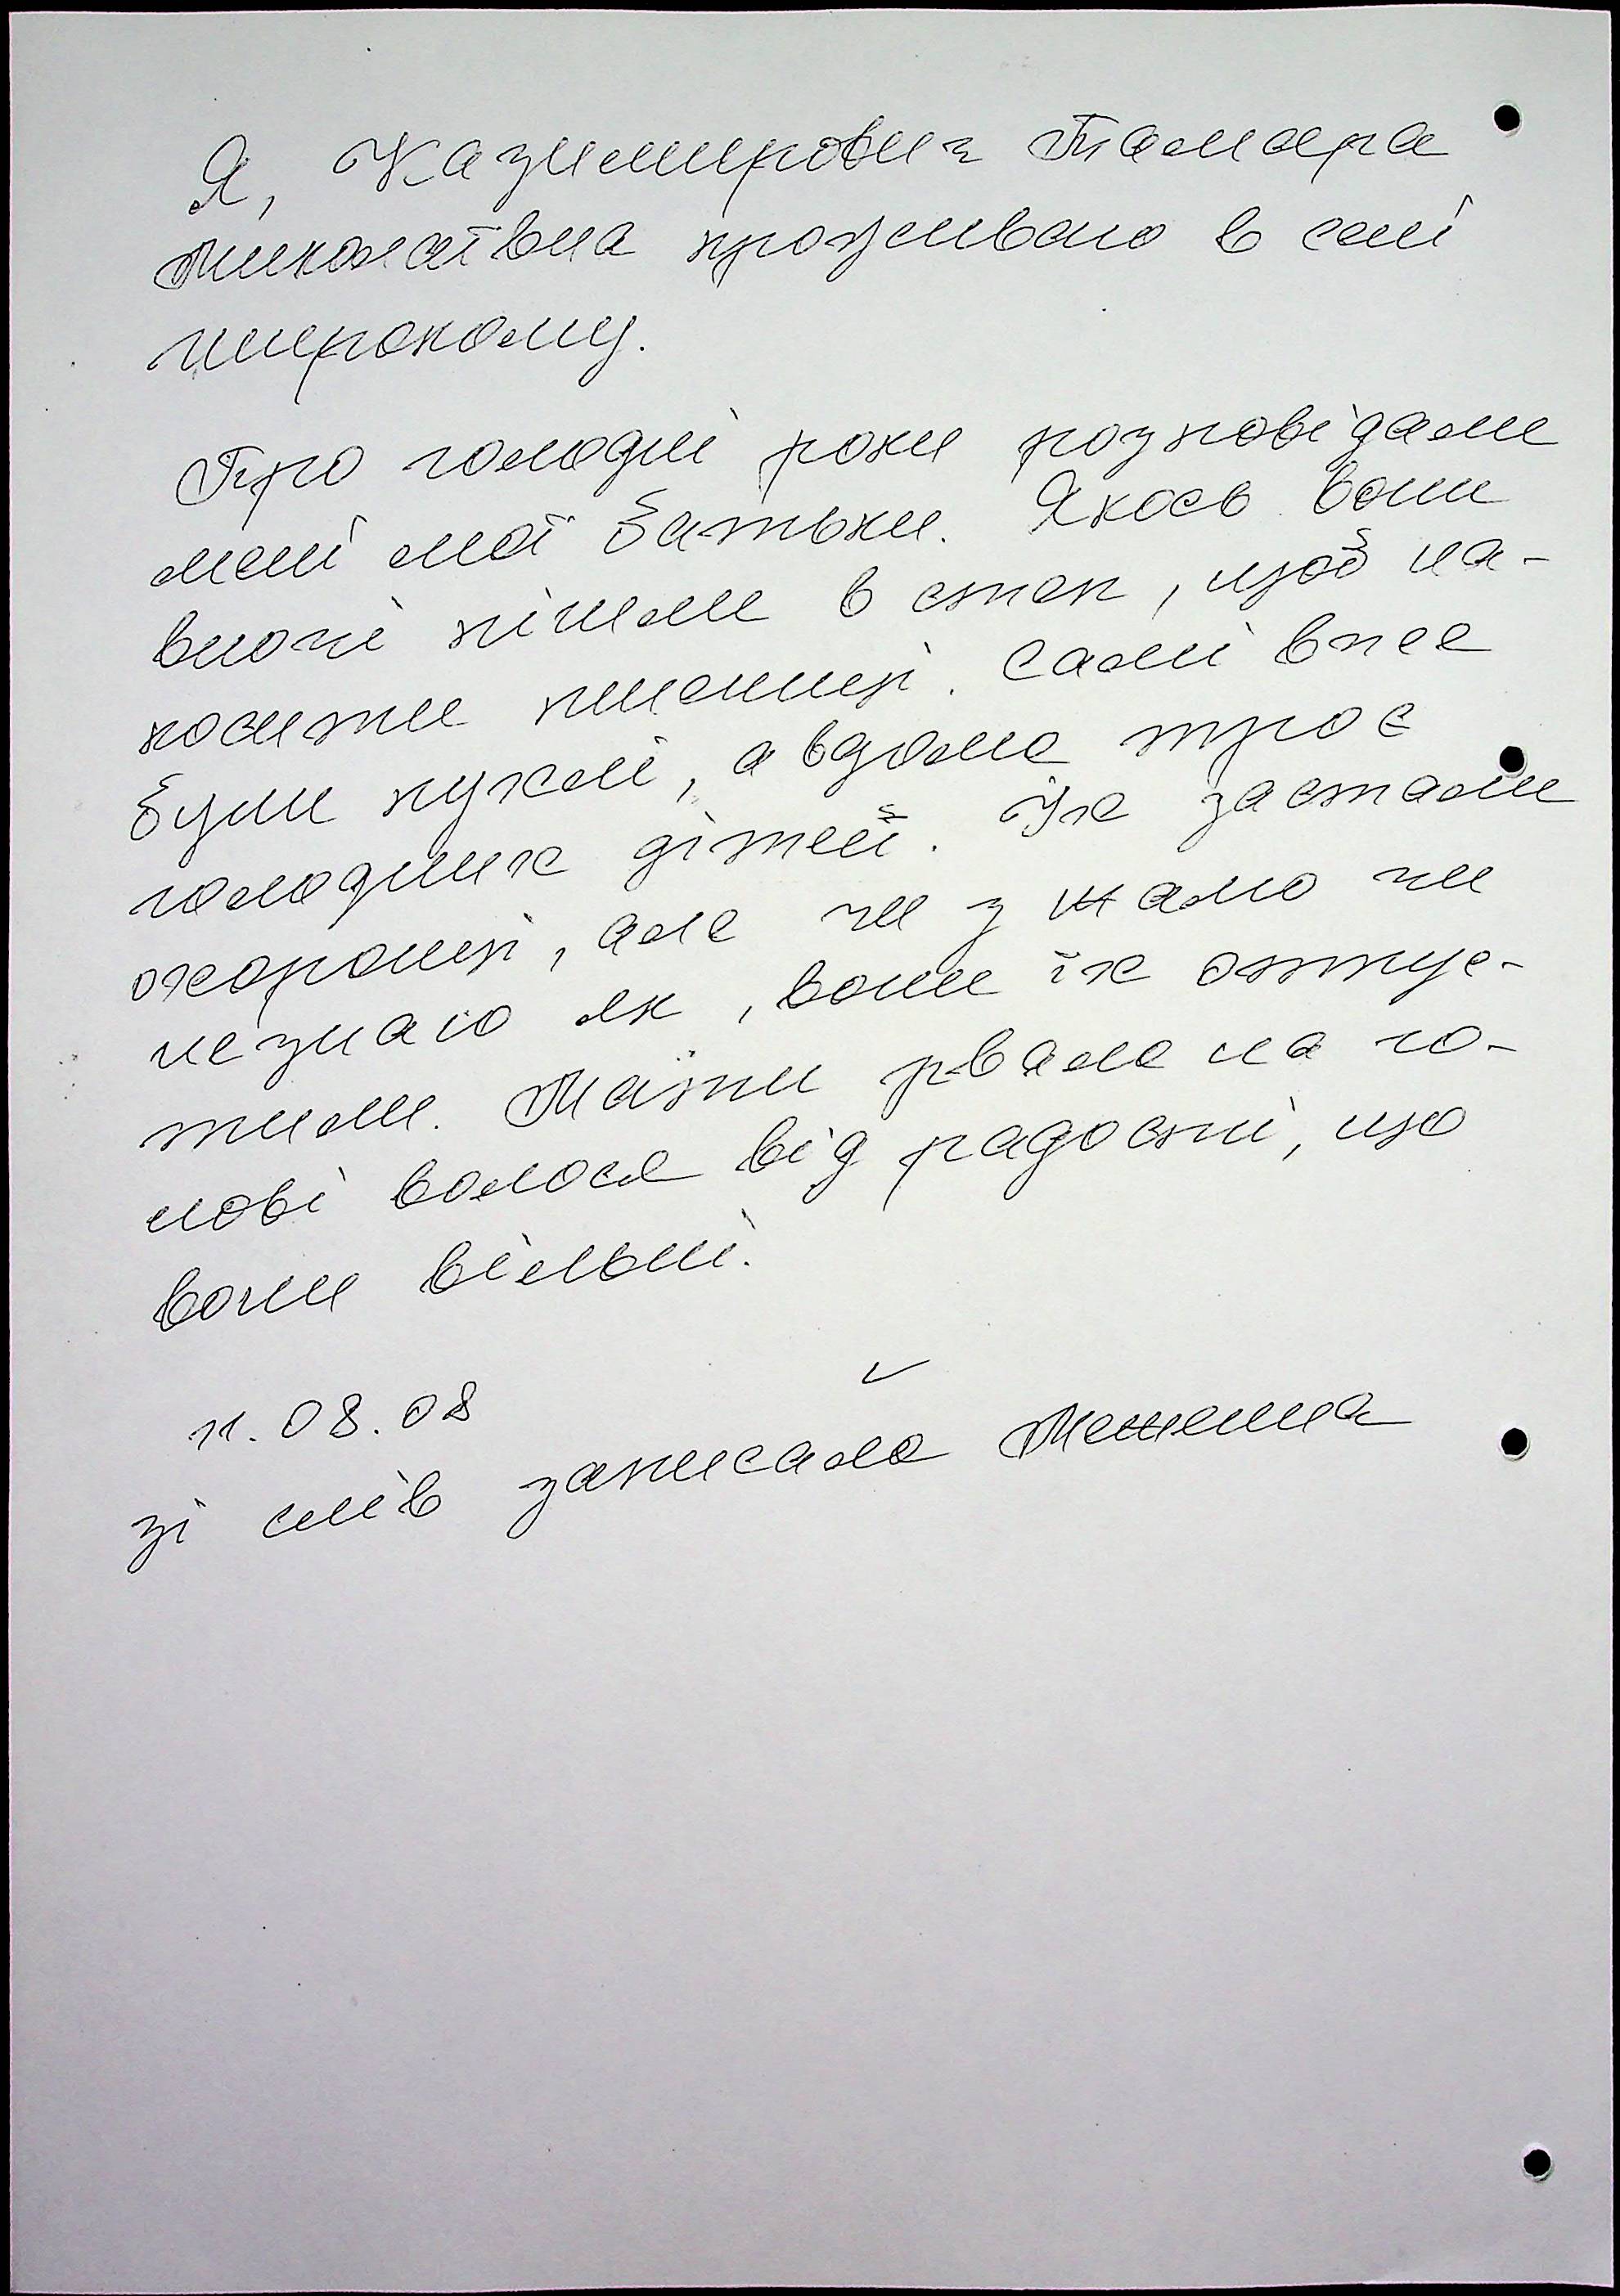 Я, Казимирович Тамара
Миколаївна проживаю в селі
широкому.
Про голодні роки розповідали
мені мої батьки. Якось вони
вночі пішли в степ, щоб на-
косити пшениці. Самі вже
були пухлі, а вдома троє
голодних дітей. Їх застали
охоронці, але чи з жалю чи
не знаю як, вони їх отпус-
тили. Мати рвала на го-
лові волося від радості, що
вони вільні.
11.08.08
зі слів записала